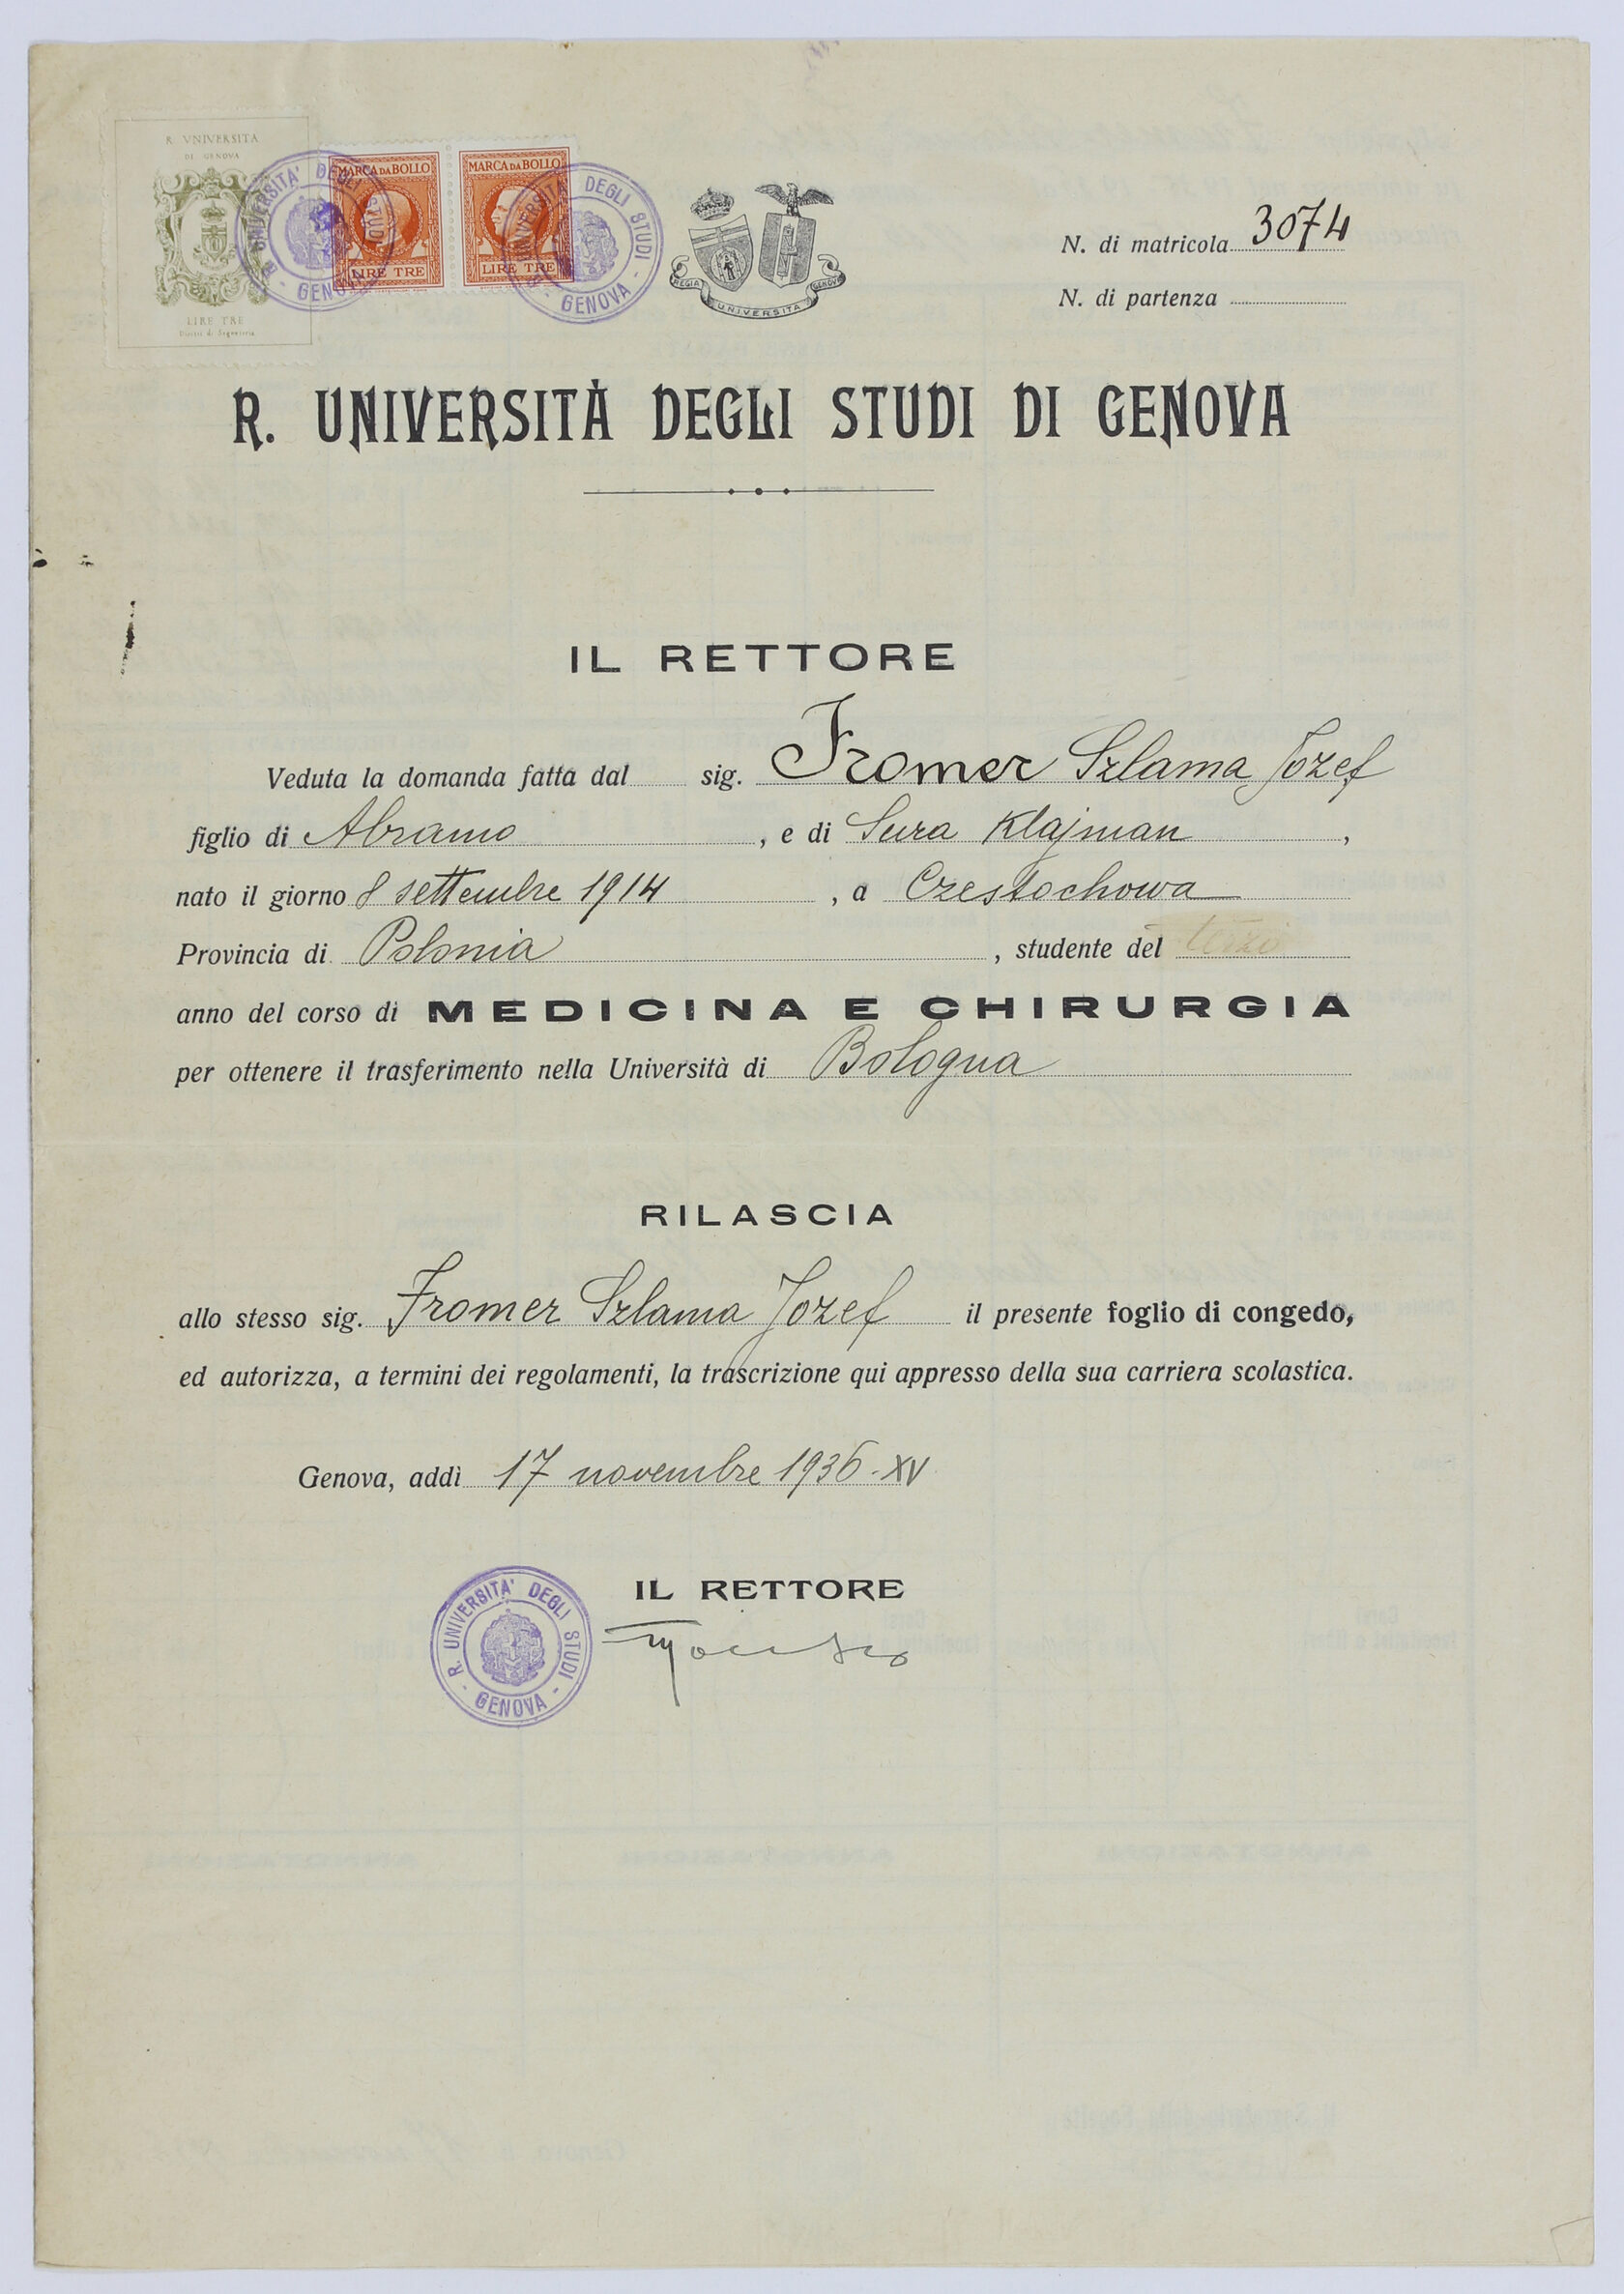 R. VNIVERSITA
DI GENOVA
LIRE TRE
Diritti di Segreteria
R. UNIVERSITA' DEGLI STUDI - GENOVA -
MARCA DA BOLLO
LIRE TRE
MARCA DA BOLLO
LIRE TRE
R. UNIVERSITA' DEGLI STUDI - GENOVA -
REGIA UNIVERSITA GENOVA
N. di matricola 3074
N. di partenza
R. UNIVERSITÀ DEGLI STUDI DI GENOVA
IL RETTORE
Veduta la domanda fatta dal sig. Fromer Szlama Jozef
figlio di Abramo, e di Sura Klajman,
nato il giorno 8 settembre 1914, a Czestochowa
Provincia di Polonia, studente del terzo
anno del corso di MEDICINA E CHIRURGIA
per ottenere il trasferimento nella Università di Bologna
RILASCIA
allo stesso sig. Fromer Szlama Jozef il presente foglio di congedo,
ed autorizza, a termini dei regolamenti, la trascrizione qui appresso della sua carriera scolastica.
Genova, addì 17 novembre 1936-XV
IL RETTORE
R. UNIVERSITA' DEGLI STUDI - GENOVA -